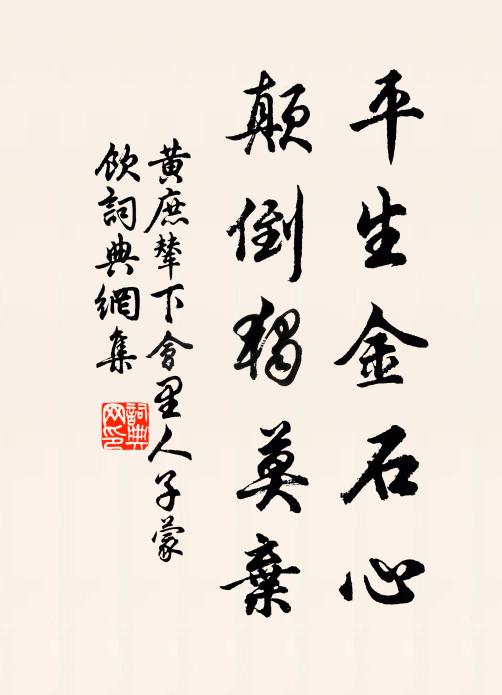 平生金石心
顛倒獨莫棄
黃庶輦下會里人子蒙
飲詞典網集
詞典
网印